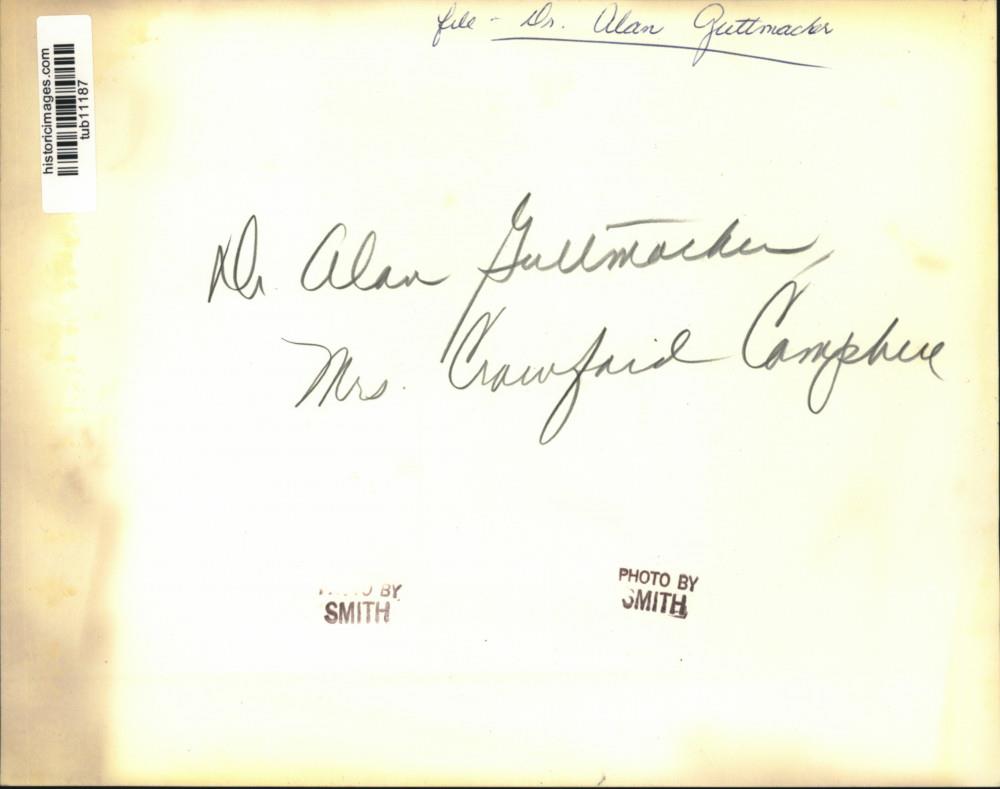 file - Dr. Alan Guttmacher
historicimages.com
tub11187
Dr. Alan Guttmacher
Mrs. Crawford
PHOTO BY
SMITH
BY
SMITH